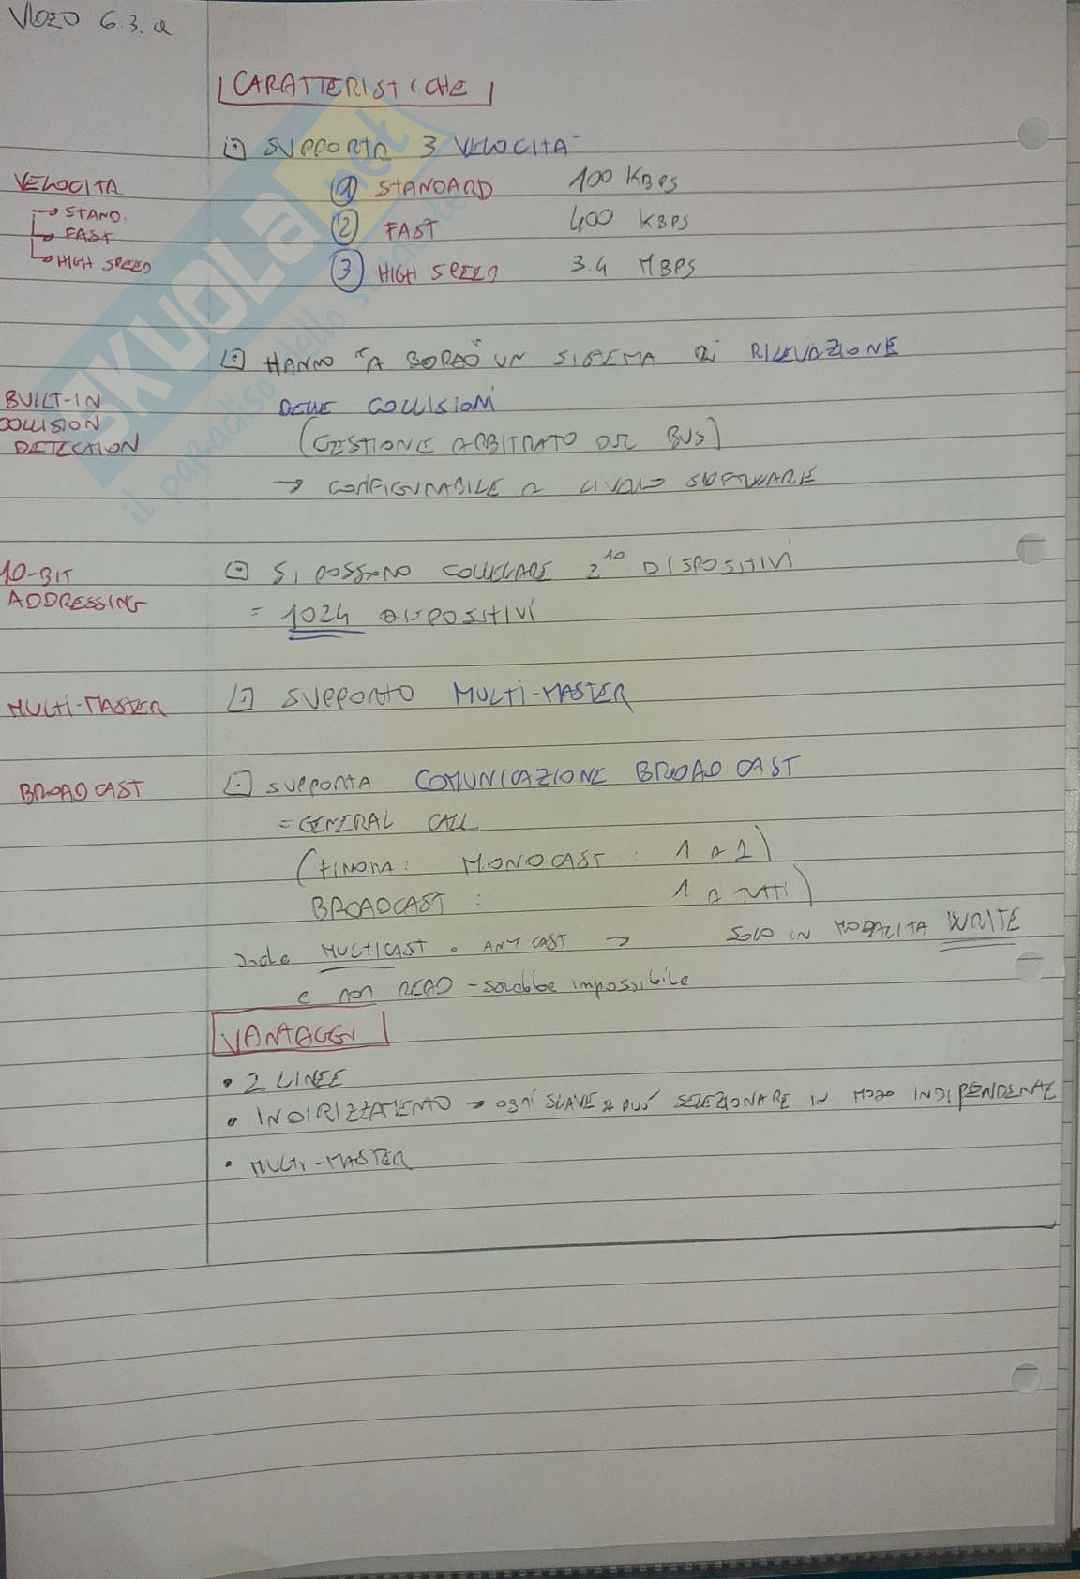 VIDEO 6.3.a
CARATTERISTICHE
SUPPORTA 3 VELOCITA'
VELOCITA
→ STAND.
→ FAST
→ HIGH SPEED
1 STANDARD 100 KBPS
2 FAST 400 KBPS
3 HIGH SPEED 3.4 MBPS
HANNO "A BORDO" UN SISTEMA DI RILEVAZIONE
BUILT-IN
COLLISION
DETECTION
DELLE COLLISIONI
(GESTIONE ARBITRATO DEL BUS)
→ CONFIGURABILE A LIVELLO SOFTWARE
10-BIT
ADDRESSING
SI POSSONO COLLEGARE 2^10 DISPOSITIVI
= 1024 DISPOSITIVI
MULTI-MASTER
SUPPORTO MULTI-MASTER
BROADCAST
SUPPORTA COMUNICAZIONE BROADCAST
= GENERAL CALL
(FINORA: MONOCAST: 1 a 1)
BROADCAST: 1 a TUTTI)
MULTICAST o ANYCAST → SOLO IN MODALITA WRITE
e non READ - sarebbe impossibile
VANTAGGI
• 2 LINEE
• INDIRIZZAMENTO → ogni SLAVE si può SELEZIONARE IN MODO INDIPENDENTE
• MULTI-MASTER
SKUOLA.net
il paradiso dello studente